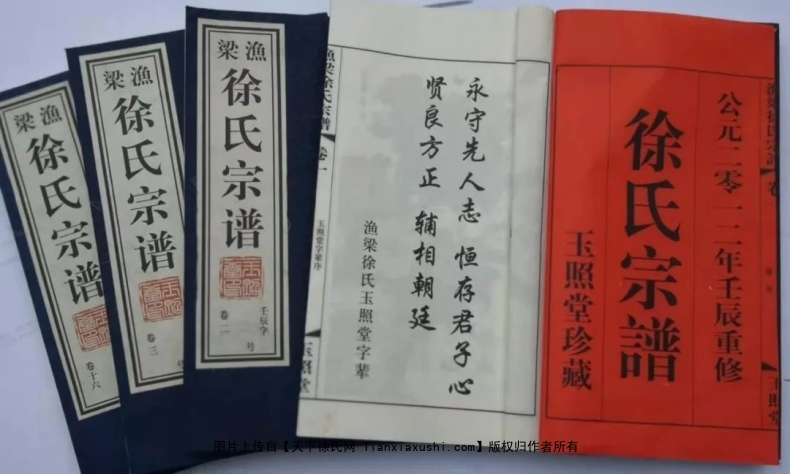 漁梁
徐氏宗谱
卷十六
漁梁
徐氏宗谱
卷三
号
漁梁
徐氏宗谱
壬辰字
号
卷二
渔梁徐氏宗谱
卷一
玉照堂字辈序
玉照堂
永守先人志 恒存君子心
贤良方正 辅相朝廷
渔梁徐氏玉照堂字辈
公元二零一二年壬辰重修
徐氏宗譜
玉照堂珍藏
渔梁徐氏宗谱
卷
玉照堂
图片上传自【天下徐氏网 tianxiaxushi.com】版权归作者所有